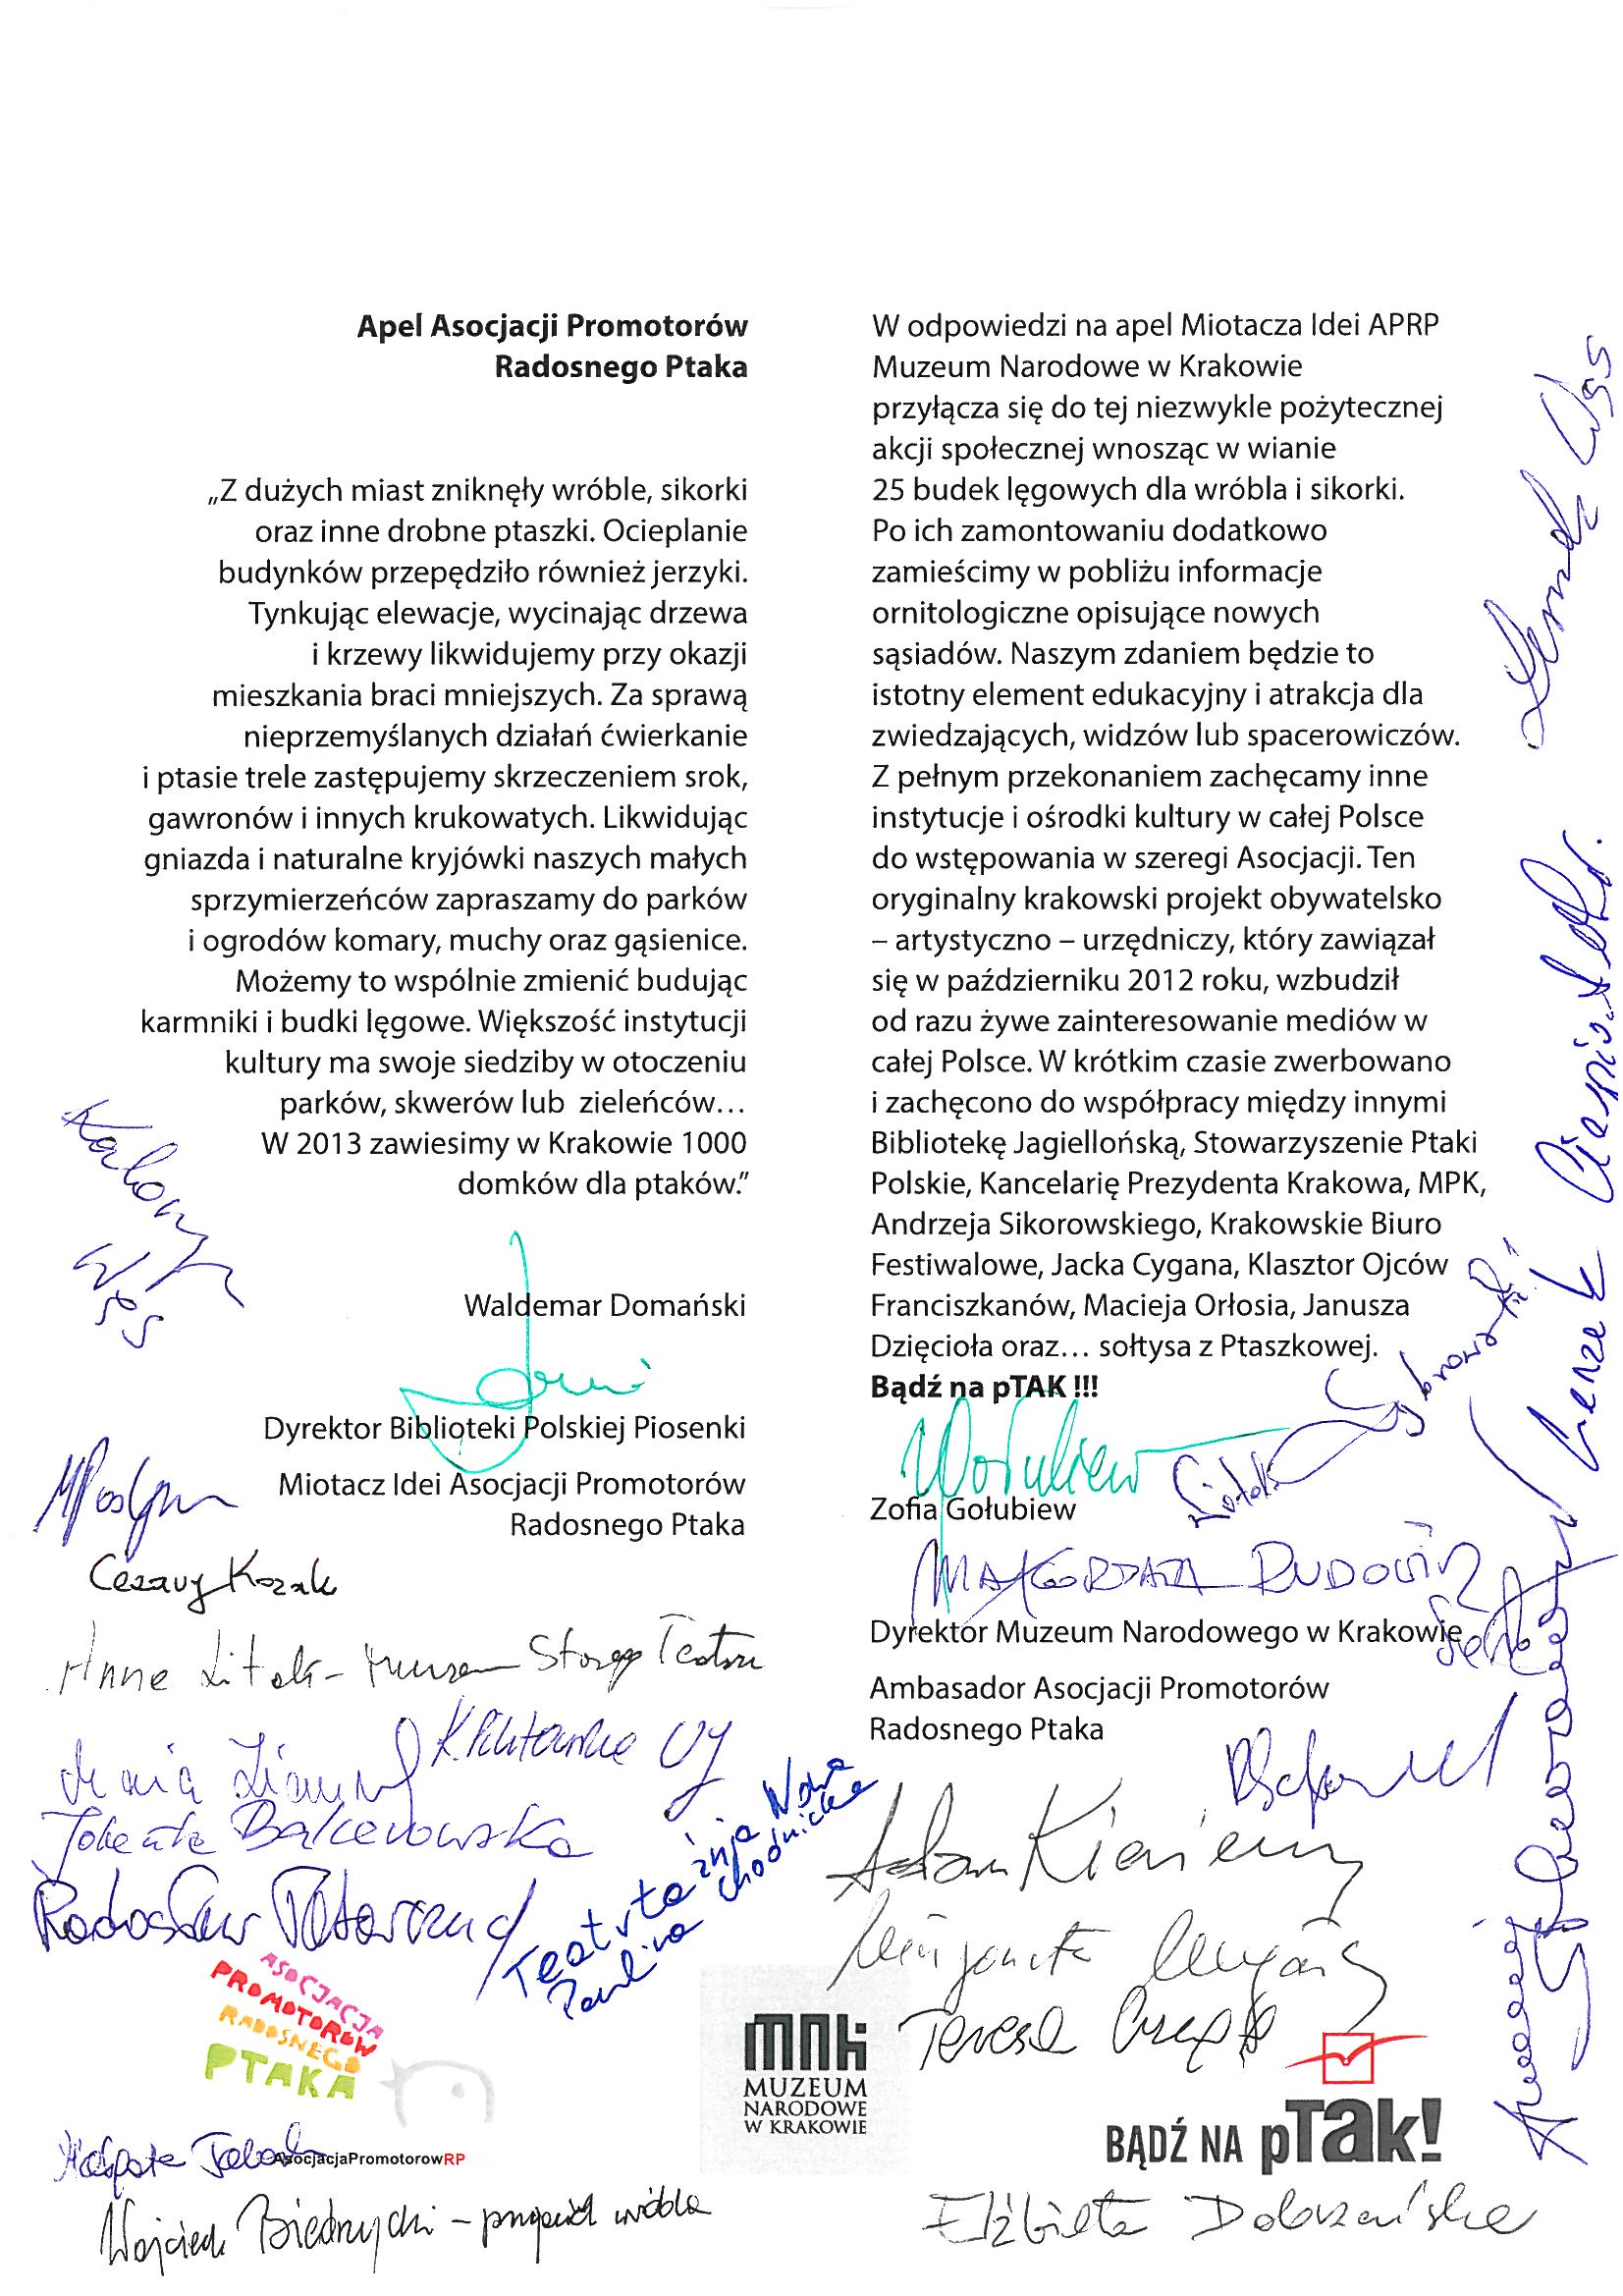 Apel Asocjacji Promotorów
Radosnego Ptaka
„Z dużych miast zniknęły wróble, sikorki
oraz inne drobne ptaszki. Ocieplanie
budynków przepędziło również jerzyki.
Tynkując elewacje, wycinając drzewa
i krzewy likwidujemy przy okazji
mieszkania braci mniejszych. Za sprawą
nieprzemyślanych działań ćwierkanie
i ptasie trele zastępujemy skrzeczeniem srok,
gawronów i innych krukowatych. Likwidując
gniazda i naturalne kryjówki naszych małych
sprzymierzeńców zapraszamy do parków
i ogrodów komary, muchy oraz gąsienice.
Możemy to wspólnie zmienić budując
karmniki i budki lęgowe. Większość instytucji
kultury ma swoje siedziby w otoczeniu
parków, skwerów lub zieleńców…
W 2013 zawiesimy w Krakowie 1000
domków dla ptaków.”
Waldemar Domański
Dyrektor Biblioteki Polskiej Piosenki
Miotacz Idei Asocjacji Promotorów
Radosnego Ptaka
Cezary Kozak
Radosław
Teatr Łaźnia Nowa
Paulina Chodnicka
ASOCJACJA
PROMOTORÓW
RADOSNEGO
PTAKA
AsocjacjaPromotorowRP
Wojciech Biedrzycki – przyjaciel wróbla
W odpowiedzi na apel Miotacza Idei APRP
Muzeum Narodowe w Krakowie
przyłącza się do tej niezwykle pożytecznej
akcji społecznej wnosząc w wianie
25 budek lęgowych dla wróbla i sikorki.
Po ich zamontowaniu dodatkowo
zamieścimy w pobliżu informacje
ornitologiczne opisujące nowych
sąsiadów. Naszym zdaniem będzie to
istotny element edukacyjny i atrakcja dla
zwiedzających, widzów lub spacerowiczów.
Z pełnym przekonaniem zachęcamy inne
instytucje i ośrodki kultury w całej Polsce
do wstępowania w szeregi Asocjacji. Ten
oryginalny krakowski projekt obywatelsko
– artystyczno – urzędniczy, który zawiązał
się w październiku 2012 roku, wzbudził
od razu żywe zainteresowanie mediów w
całej Polsce. W krótkim czasie zwerbowano
i zachęcono do współpracy między innymi
Bibliotekę Jagiellońską, Stowarzyszenie Ptaki
Polskie, Kancelarię Prezydenta Krakowa, MPK,
Andrzeja Sikorowskiego, Krakowskie Biuro
Festiwalowe, Jacka Cygana, Klasztor Ojców
Franciszkanów, Macieja Orłosia, Janusza
Dzięcioła oraz… sołtysa z Ptaszkowej.
Bądź na pTAK !!!
Zofia Gołubiew
Dyrektor Muzeum Narodowego w Krakowie
Ambasador Asocjacji Promotorów
Radosnego Ptaka
Adam
Teresa
mnk
MUZEUM
NARODOWE
W KRAKOWIE
BĄDŹ NA pTak!
Elżbieta Dobrzańska